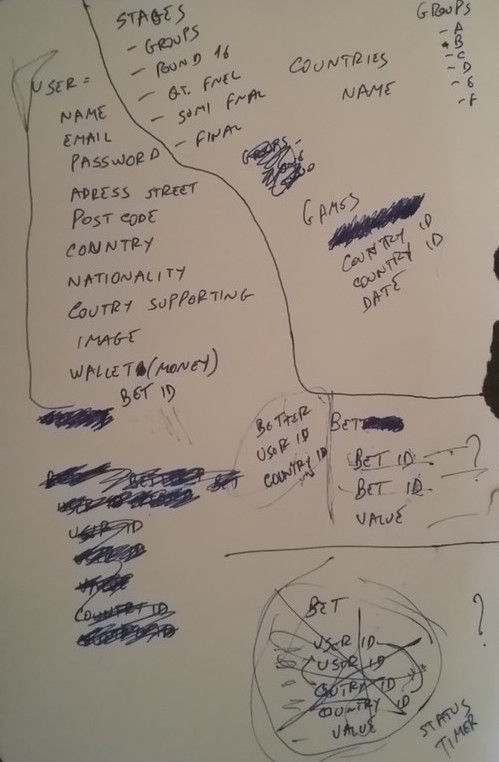 STAGES
- GROUPS
- ROUND 16
- QT. FNEL
- SOMI FNAL
- FINAL
GROUPS
- A
- B
- C
- D
- E
- F
COUNTRIES
NAME
USER =
NAME
EMAIL
PASSWORD
ADRESS STREET
POST CODE
COUNTRY
NATIONALITY
COUTRY SUPPORTING
IMAGE
WALLET (MONEY)
BET ID
GROUPS
GAMES
COUNTRY ID
COUNTRY ID
DATE
BETTER
USER ID
COUNTRY ID
BET
BET ID
BET ID
VALUE
?
BET
USER ID
COUNTRY ID
BET
USER ID
USER ID
COUTRY ID
COUNTRY ID
VALUE
?
STATUS
TIMER